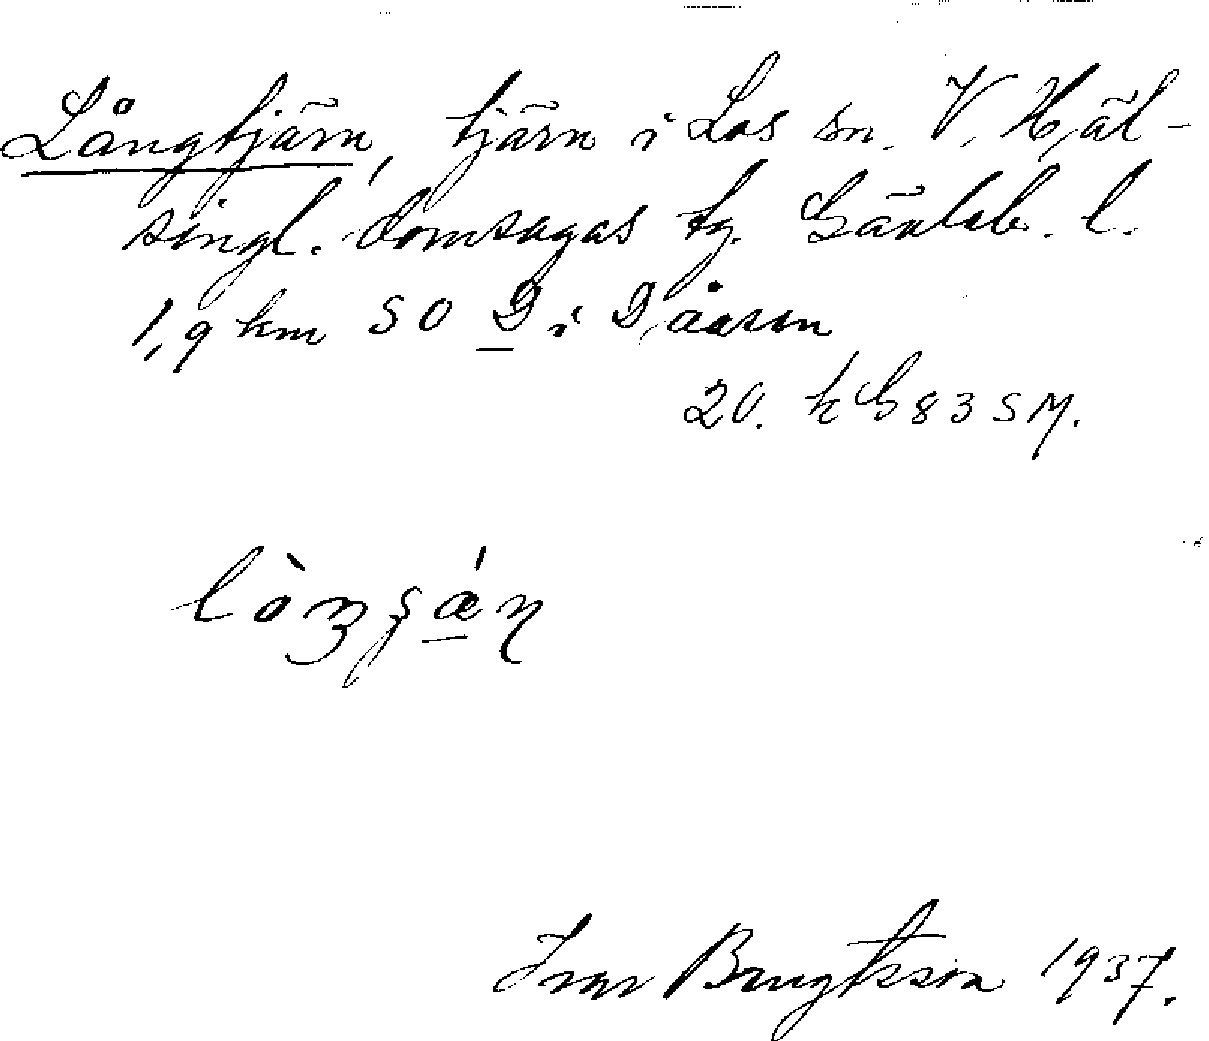 Långtjärn, tjärn i Los sn. V. Häl-
singl. domsagas tg. Gävleb. l.
1,9 km SO D i Dåasen
20. k G 83 SM.
Ivar Bengtsson 1937.